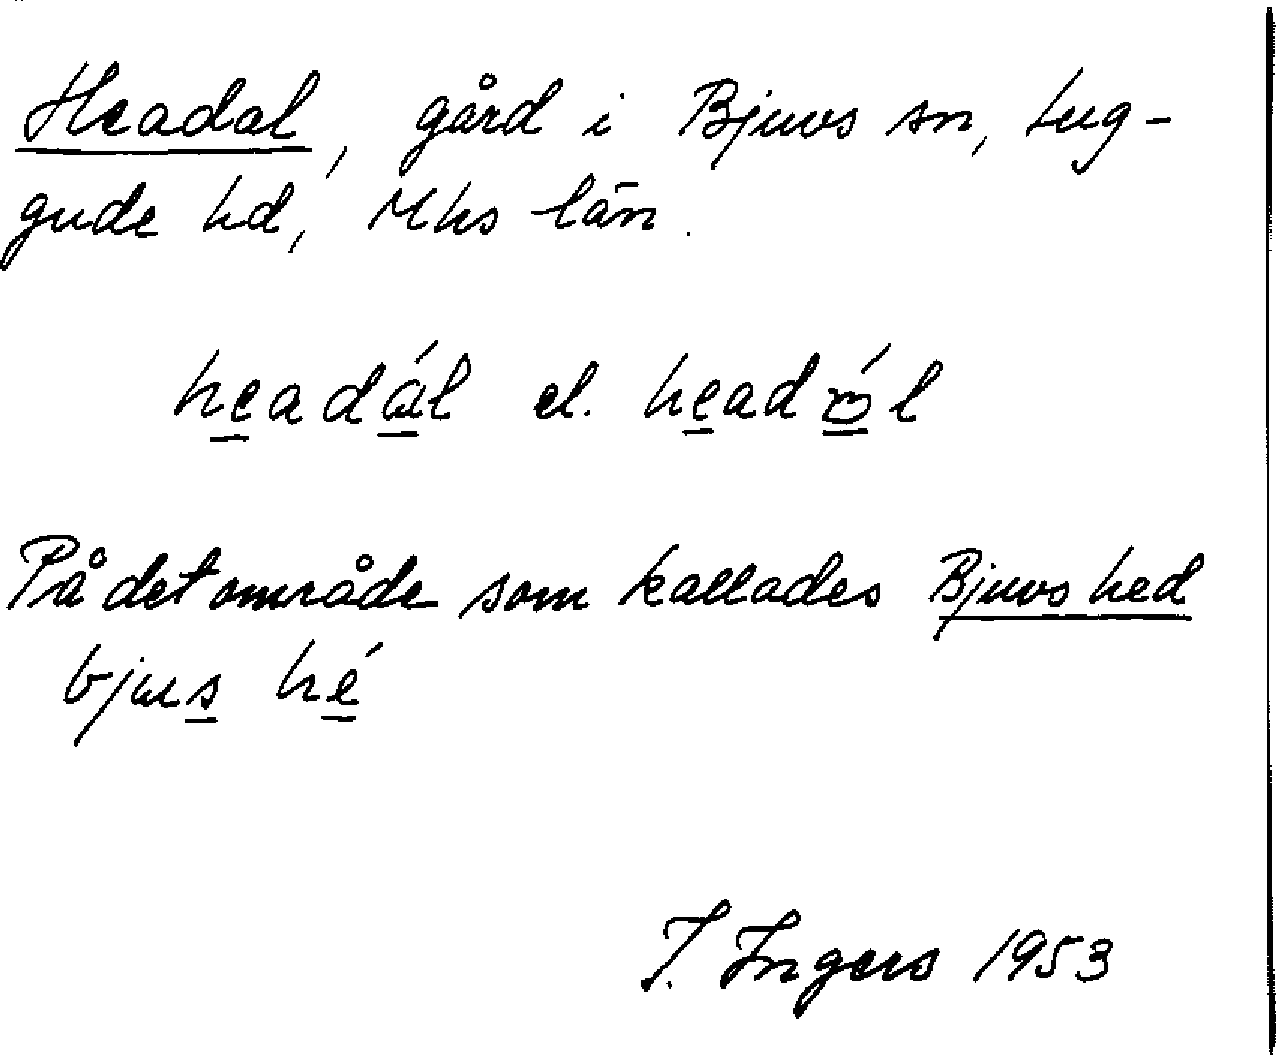 Headal, gård i Bjuvs sn, Lug-
gude hd, Mhs län.
headál el. headól
På det område som kallades Bjuvs hed
bjus hé
I. Ingers 1953